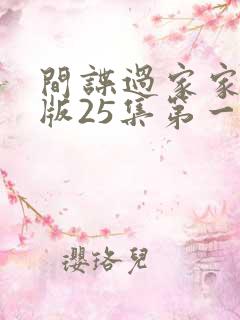 間諜過家家
版25集第一
瓔珞兒